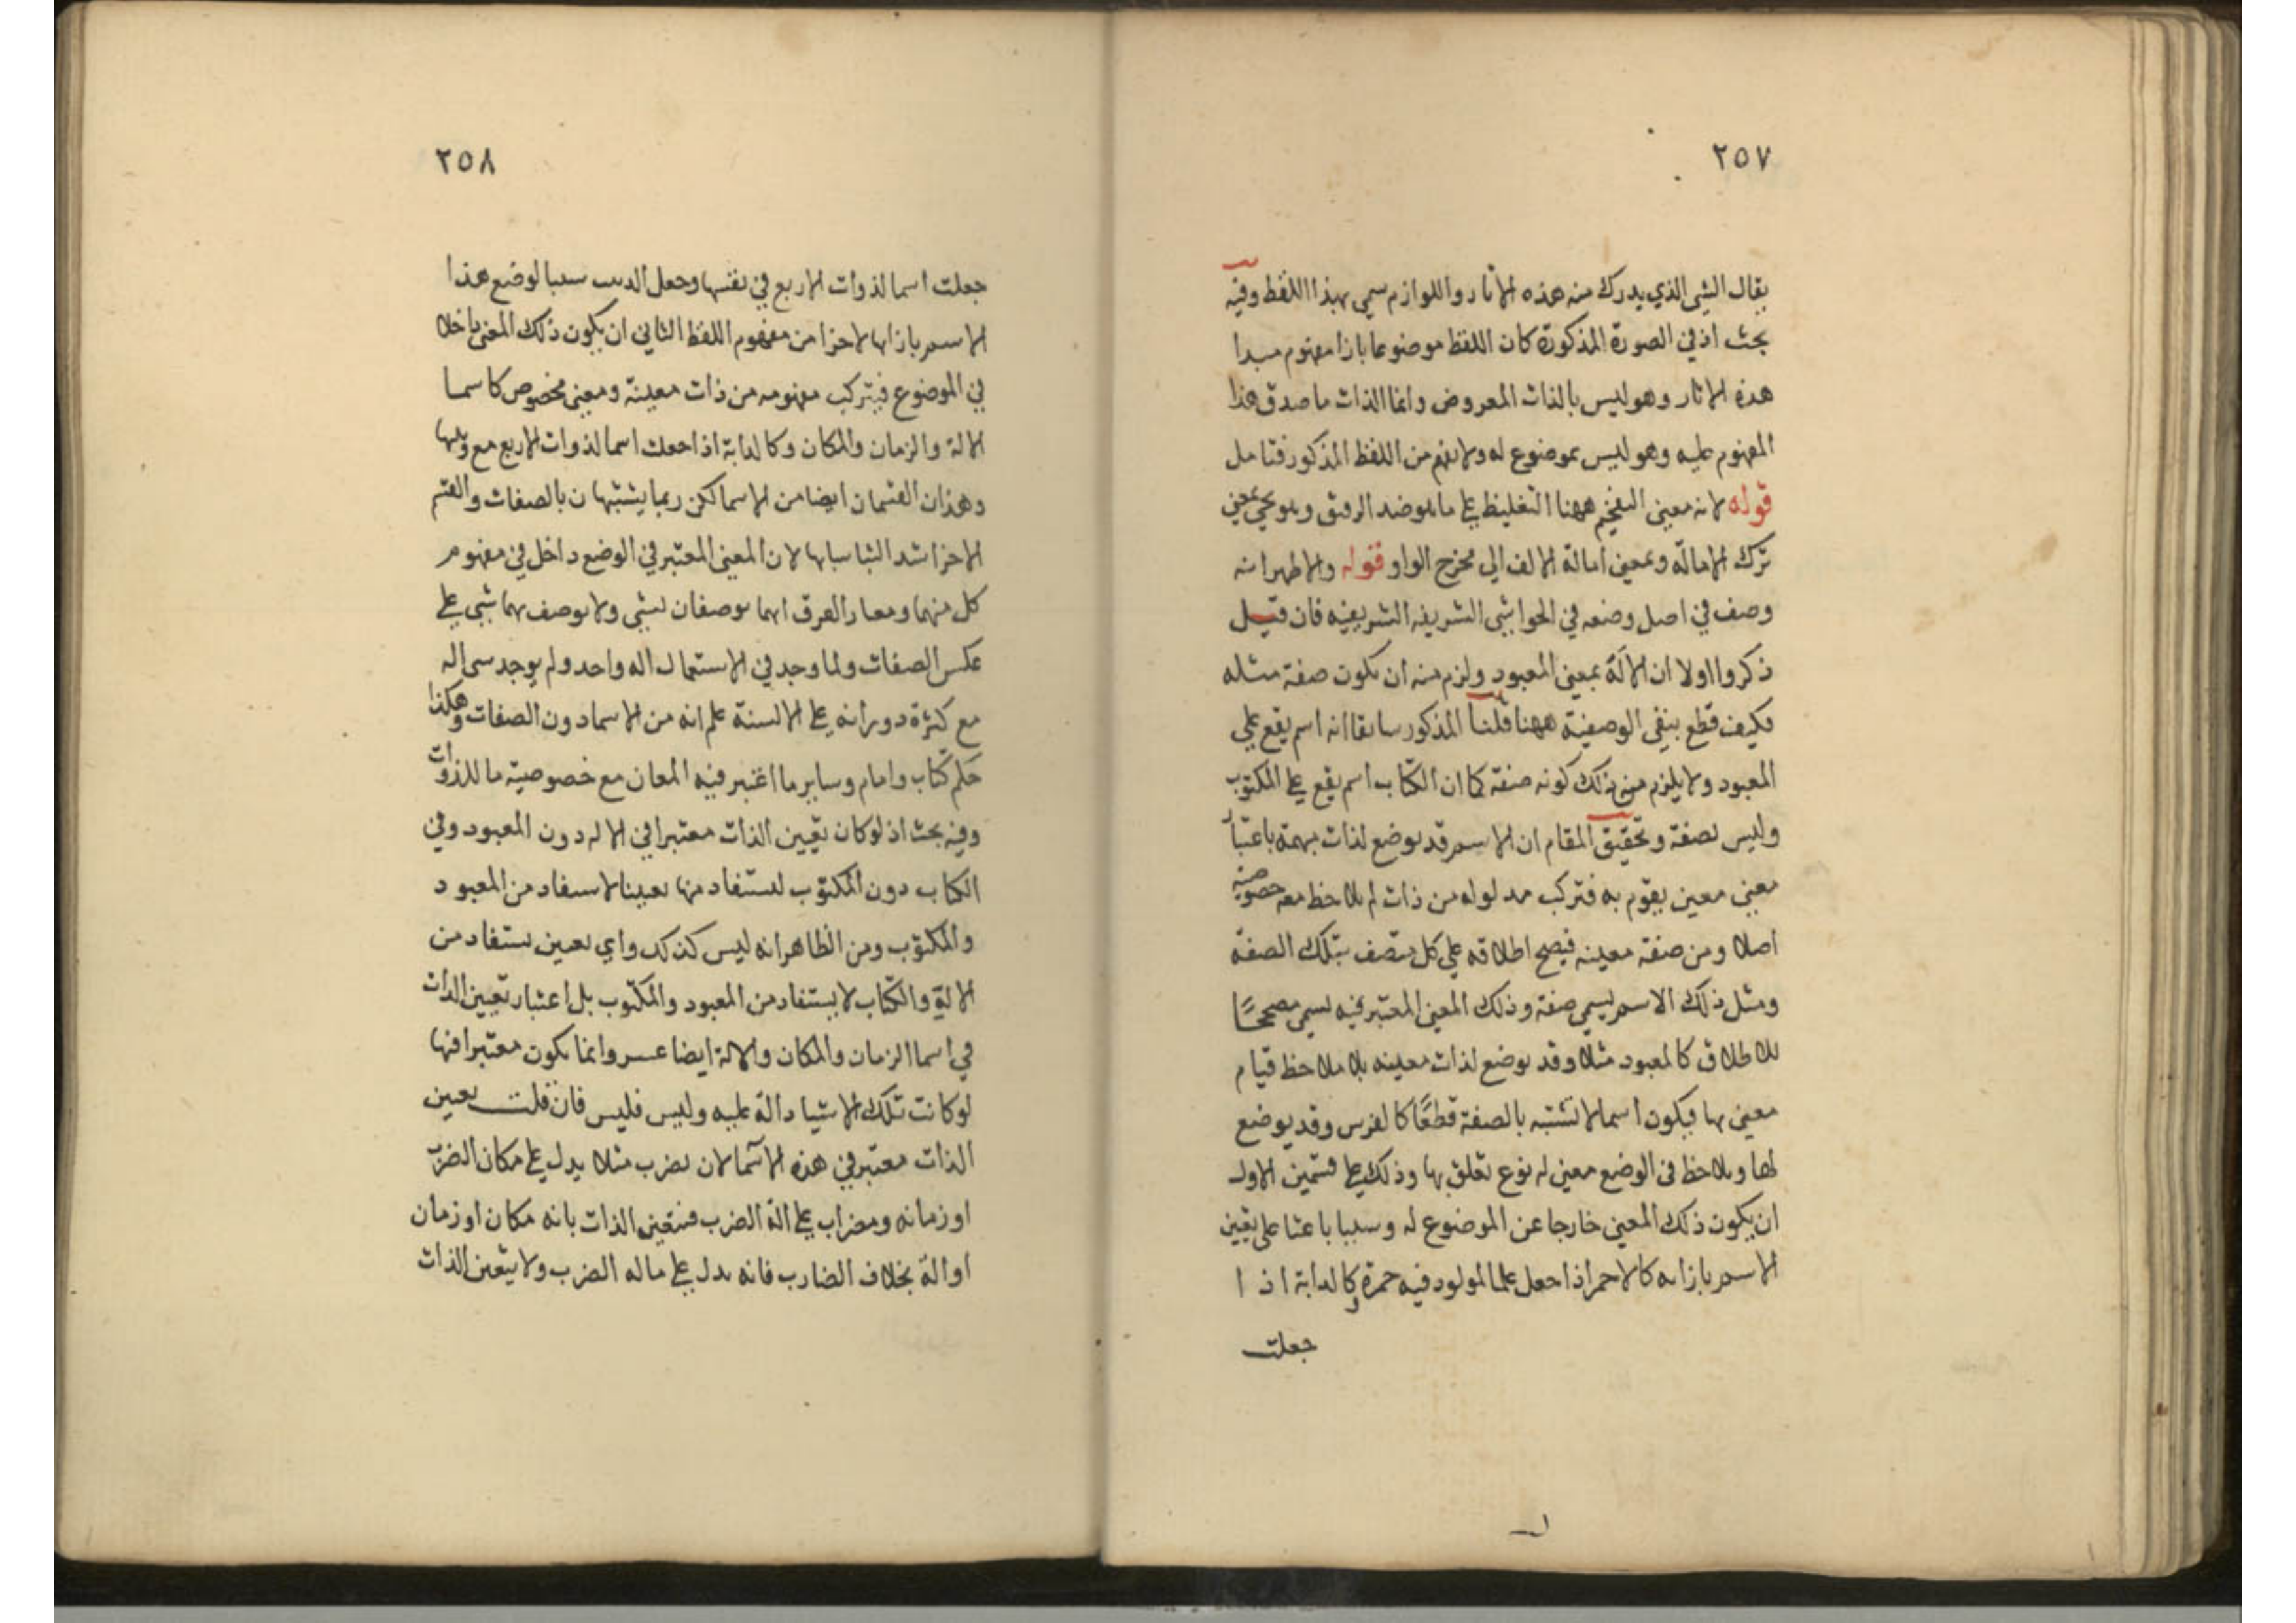 ٢٥٧
يقال الشي الذي يدرك منه هذه الاثار واللوازم سمي بهذا اللفظ وفيه
بحث اذ في الصورة المذكورة كان اللفظ موضوعا بازا مفهوم مبدا
هذه الاثار وهو ليس بالذات المعروض وانما الذات ما صدق هذا
المفهوم عليه وهو ليس بموضوع له ولا يفهم من اللفظ المذكور فتامل
قوله لانه معنى التفخيم ههنا التغليظ على ما هو ضد الرقيق ويجي بمعنى
ترك الامالة وبمعنى امالة الالف الي مخرج الواو قوله والاظهر انه
وصف في اصل وضعه في الحواشي الشريفه الشريفيه فان قيل
ذكروا اولا ان الالة بمعنى المعبود ولزم منه ان يكون صفة مثله
فكيف قطع بنفي الوصفية ههنا قلنا المذكور سابقا انه اسم يقع علي
المعبود ولا يلزم من ذلك كونه صفة كما ان الكتاب اسم يقع على المكتوب
وليس بصفة وتحقيق المقام ان الاسم قد يوضع لذات مبهمة باعتبار
معنى معين يقوم به فتركب مدلوله من ذات لم يلاحظ معه خصوصية
اصلا ومن صفة معينه فيصح اطلاقه علي كل متصف بتلك الصفة
ومثل ذلك الاسم يسمي صفة وذلك المعنى المعتبر فيه يسمي مصححًا
للاطلاق كالمعبود مثلا وقد يوضع لذات معينه بلا ملاحظ قيام
معنى بها فيكون اسما لا تشتبه بالصفة قطعًا كالفرس وقد يوضع
لها ويلاحظ في الوضع معنى له نوع تعلق بها وذلك على قسمين الاول
ان يكون ذلك المعنى خارجا عن الموضوع له وسببا باعثا على تعيين
الاسم بازائه كالاحمر اذا جعل علما لمولود فيه حمرة وكالدابة اذا
جعلت
٢٥٨
جعلت اسما لذوات الاربع في نفسها وجعل الدبيب سببا لوضع هذا
الاسم بازائها لا جزا من مفهوم اللفظ الثاني ان يكون ذلك المعنى داخلا
في الموضوع فيتركب مفهومه من ذات معينة ومعنى مخصوص كاسما
الالة والزمان والمكان وكالدابة اذا جعلت اسما لذوات الاربع مع دبيبها
وهذان القسمان ايضا من الاسما لكن ربما يشتبهان بالصفات والقسم
الاخر اشد التباسا بها لان المعنى المعتبر في الوضع داخل في مفهوم
كل منهما ومعيار الفرق انهما يوصفان بشي ولا يوصف بهما شي على
عكس الصفات ولما وجد في الاستعمال اله واحد ولم يوجد شي اله
مع كثرة دورانه على الالسنة علم انه من الاسما دون الصفات وهكذا
حكم كتاب وامام وساير ما اعتبر فيه المعان مع خصوصية ما للذوات
وفيه بحث اذ لو كان تعيين الذات معتبرا في الاله دون المعبود وفي
الكتاب دون المكتوب لاستفاد منها تعيينا لا يستفاد من المعبود
والمكتوب ومن الظاهر انه ليس كذلك واي تعيين يستفاد من
الالة والكتاب لا يستفاد من المعبود والمكتوب بل اعتبار تعيين الذات
في اسما الزمان والمكان والالة ايضا عسر وانما يكون معتبرا فيها
لو كانت تلك الاشيا دالة عليه وليس فليس فان قلت تعين
الذات معتبر في هذه الاسما لان مضرب مثلا يدل على مكان الضرب
او زمانه ومضراب على الة الضرب فتعين الذات بانه مكان او زمان
او الة بخلاف الضارب فانه يدل على ماله الضرب ولا يتعين الذات